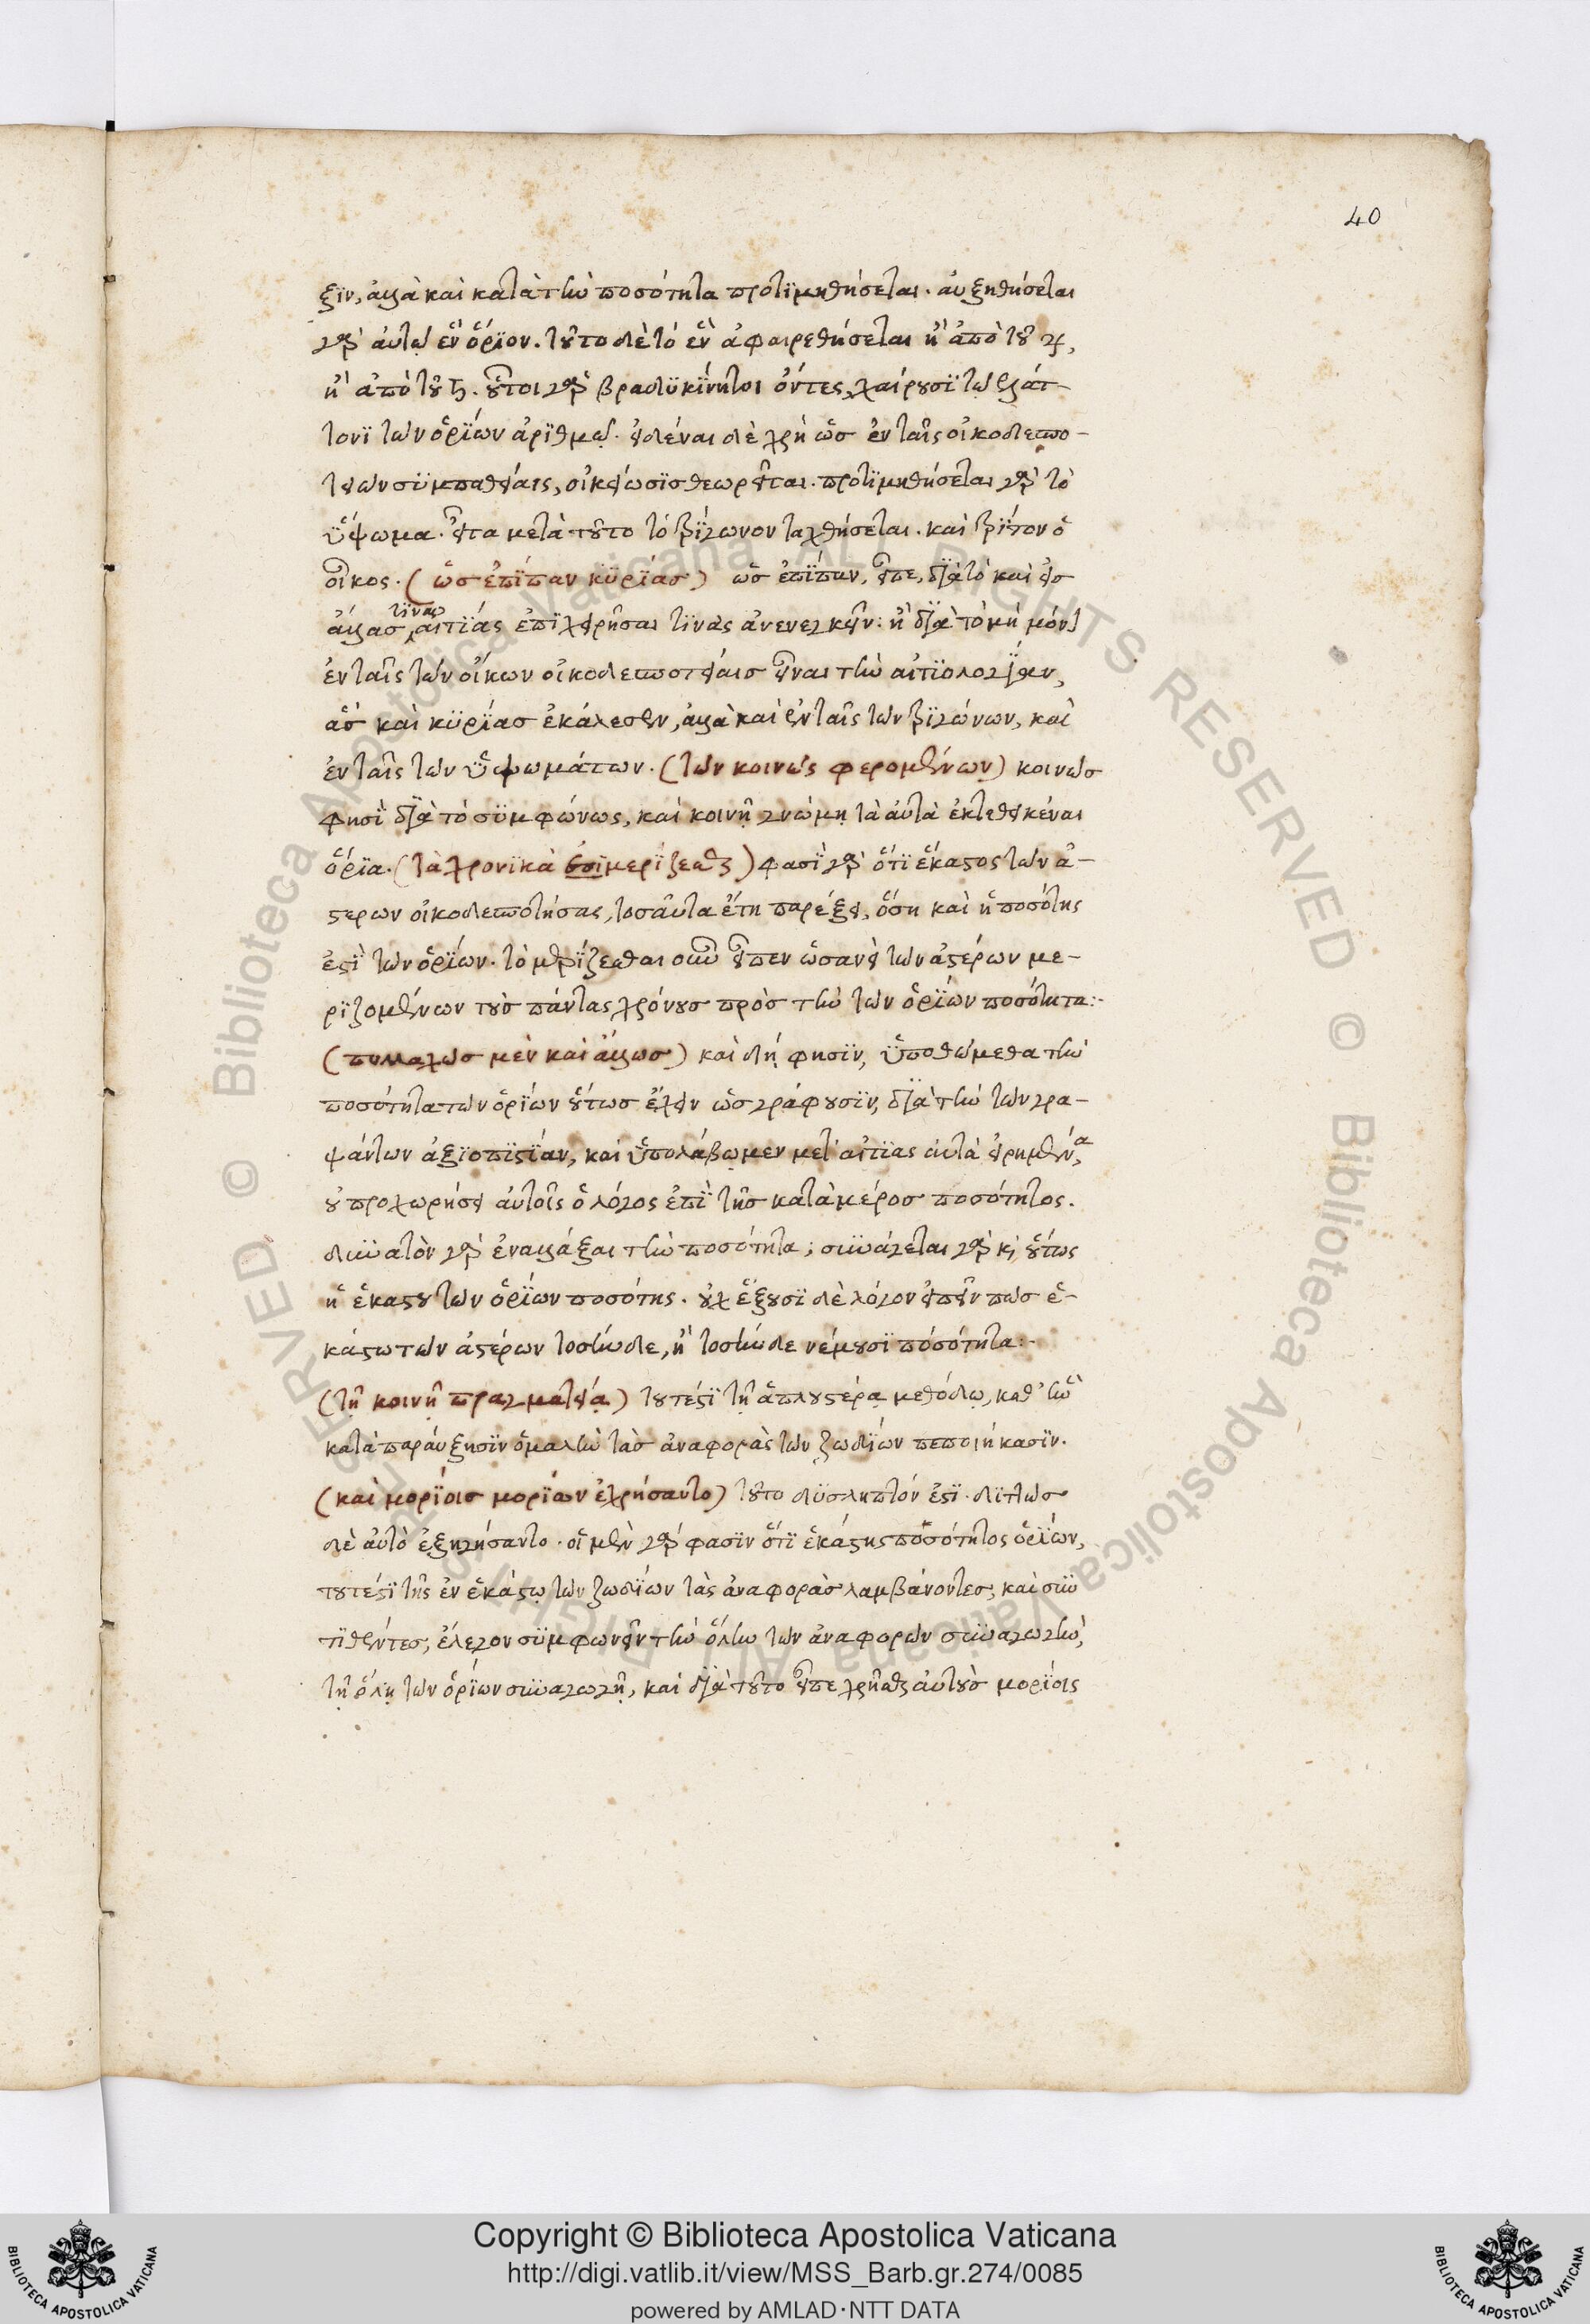 40
ξϊν, ἀλλὰ καὶ κατὰ τὴν ποσότητα προτϊμηθήσεται. αὐξηθήσεται
γὰρ αὐτῷ ἓν ὅριον. τοῦτο δὲ τὸ ἓν ἀφαιρεθήσεται ἢ ἀπὸ τοῦ ♃,
ἢ ἀπὸ τοῦ ♄. οὗτοι γὰρ βραδϋκΐνητοι ὄντες, χαίρουσϊ τῷ ἐλάτ-
τονϊ τῶν ὁρϊων ἀρϊθμῷ. εἰδέναι δὲ χρὴ ὡς ἐν ταῖς οἰκοδεσπο-
τειῶν συμπαθείαις, οἰκειώσϊς θεωρεῖται. προτϊμηθήσεται γὰρ τὸ
ὕψωμα. εἶτα μετὰ τοῦτο τὸ τρίγωνον ταχθήσεται. καὶ τρίτον ὁ
οἶκος. (ὡς ἐπΐπαν κϋρίας) ὡς ἐπΐπαν, εἶπε, διὰ τὸ καὶ εἰς
ἄλλας τινας αἰτϊας ἐπϊχειρῆσαι τϊνὰς ἀνενεγκεῖν: ἢ διὰ τὸ μὴ μόνον
ἐν ταῖς τῶν οἴκων οἰκοδεσποτείαις εἶναι τὴν αἰτϊολογίαν,
ἃς καὶ κϋρίας ἐκάλεσεν, ἀλλὰ καὶ ἐν ταῖς τῶν τριγώνων, καὶ
ἐν ταῖς τῶν ὑψωμάτων. (τῶν κοινῶς φερομένων) κοινῶς
φησὶ διὰ τὸ συμφώνως, καὶ κοινῇ γνώμῃ τὰ αὐτὰ ἐκτεθεικέναι
ὅρϊα. (τὰ χρονϊκὰ ἐπϊμερϊζεσθαι) φασὶ γὰρ ὅτϊ ἕκαστος τῶν ἀ-
στέρων οἰκοδεσποτήσας, τοσαῦτα ἔτη παρέξει, ὅση καὶ ἡ ποσότης
ἐστὶ τῶν ὁρϊων. τὸ μερϊζεσθαι οὖν εἶπεν ὡσανεὶ τῶν ἀστέρων με-
ρϊζομένων τοὺς πάντας χρόνους πρὸς τὴν τῶν ὁρϊων ποσότητα:-
(πολλαχῶς μὲν καὶ ἄλλως) καὶ δή φησϊν, ὑποθώμεθα τὴν
ποσότητα τῶν ὁρϊων οὕτως ἔχειν ὡς γράφουσϊν, διὰ τὴν τῶν γρα-
ψάντων ἀξϊοπϊστίαν, καὶ ὑπολάβωμεν μετ' αἰτϊας αὐτὰ εἰρημένα,
οὐ προχωρήσει αὐτοῖς ὁ λόγος ἐπὶ τῆς κατὰ μέρος ποσότητος.
δυνατὸν γὰρ ἐναλλάξαι τὴν ποσότητα; συνάγεται γὰρ κ οὕτως
ἡ ἑκάστου τῶν ὁρϊων ποσότης. οὐχ ἕξουσϊ δὲ λόγον εἰπεῖν πῶς ἑ-
κάστῳ τῶν ἀστέρων τοσήνδε, ἢ τοσήνδε νέμουσϊ ποσότητα:-
(τῇ κοινῇ πραγματείᾳ) τουτέστϊ τῇ ἁπλουστέρᾳ μεθόδῳ, καθ' ἣν
κατὰ παραύξησϊν ὁμαλὴν τὰς ἀναφορὰς τῶν ζωδϊων πεποιήκασϊν.
(καὶ μορΐοις μορΐων ἐχρήσαντο) τοῦτο δϋσληπτόν ἐστϊ. δϊττῶς
δὲ αὐτὸ ἐξηγήσαντο. οἱ μὲν γάρ φασϊν ὅτϊ ἑκάστης ποσότητος ὁρϊων,
τουτέστϊ τῆς ἐν ἑκάστῳ τῶν ζωδϊων τὰς ἀναφορὰς λαμβάνοντες, καὶ συν
τϊθέντες, ἔλεγον συμφωνεῖν τὴν ὅλην τῶν ἀναφορῶν συναγωγὴν,
τῇ ὅλῃ τῶν ὁρϊων συναγωγῇ, καὶ διὰ τοῦτο εἶπε χρῆσθαι αὐτοὺς μορΐοις
Copyright © Biblioteca Apostolica Vaticana
http://digi.vatlib.it/view/MSS_Barb.gr.274/0085
powered by AMLAD·NTT DATA